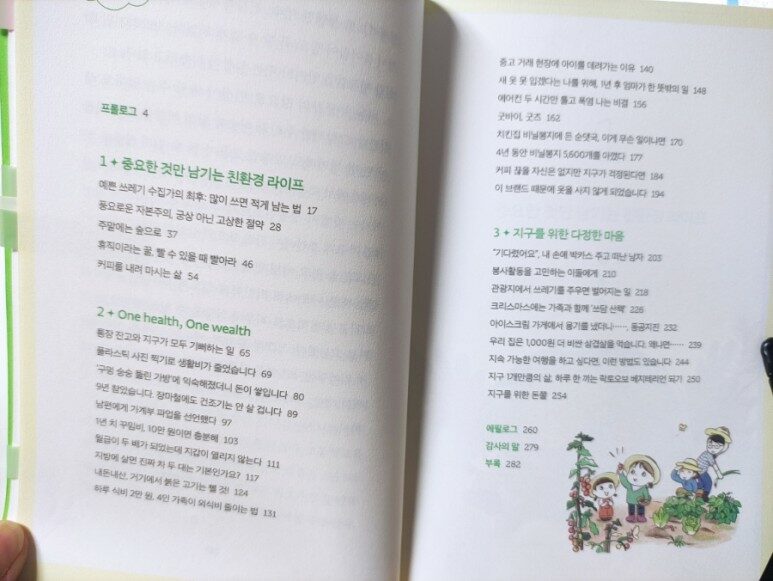 프롤로그 4
1 + 중요한 것만 남기는 친환경 라이프
예쁜 쓰레기 수집가의 최후: 많이 쓰면 적게 남는 법 17
풍요로운 자본주의, 궁상 아닌 고상한 절약 28
주말에는 숲으로 37
휴직이라는 꿀, 빨 수 있을 때 빨아라 46
커피를 내려 마시는 삶 54
2 + One health, One wealth
통장 잔고와 지구가 모두 기뻐하는 일 65
플라스틱 사진 찍기로 생활비가 줄었습니다 69
'구멍 숭숭 뚫린 가방'에 익숙해졌더니 돈이 쌓입니다 80
9년 참았습니다. 장마철에도 건조기는 안 살 겁니다 89
남편에게 가계부 파업을 선언했다 97
1년 치 꾸밈비, 10만 원이면 충분해 103
월급이 두 배가 되었는데 지갑이 열리지 않는다 111
지방에 살면 진짜 차 두 대는 기본인가요? 117
내돈내산, 거기에서 붉은 고기는 뺄 것! 124
하루 식비 2만 원, 4인 가족이 외식비 줄이는 법 131
중고 거래 현장에 아이를 데려가는 이유 140
새 옷 못 입겠다는 나를 위해, 1년 후 엄마가 한 뜻밖의 일 148
에어컨 두 시간만 틀고 폭염 나는 비결 156
굿바이, 굿즈 162
치킨집 비닐봉지에 든 순댓국, 이게 무슨 일이냐면 170
4년 동안 비닐봉지 5,600개를 아꼈다 177
커피 끊을 자신은 없지만 지구가 걱정된다면 184
이 브랜드 때문에 옷을 사지 않게 되었습니다 194
3 + 지구를 위한 다정한 마음
"기다렸어요", 내 손에 박카스 주고 떠난 남자 203
봉사활동을 고민하는 이들에게 210
관광지에서 쓰레기를 주우면 벌어지는 일 218
크리스마스에는 가족과 함께 '쓰담 산책' 226
아이스크림 가게에서 용기를 냈더니……, 동공지진 232
우리 집은 1,000원 더 비싼 삼겹살을 먹습니다, 왜냐면…… 239
지속 가능한 여행을 하고 싶다면, 이런 방법도 있습니다 244
지구 1개만큼의 삶, 하루 한 끼는 락토오보 베지테리언 되기 250
지구를 위한 돈물 254
에필로그 260
감사의 말 279
부록 282